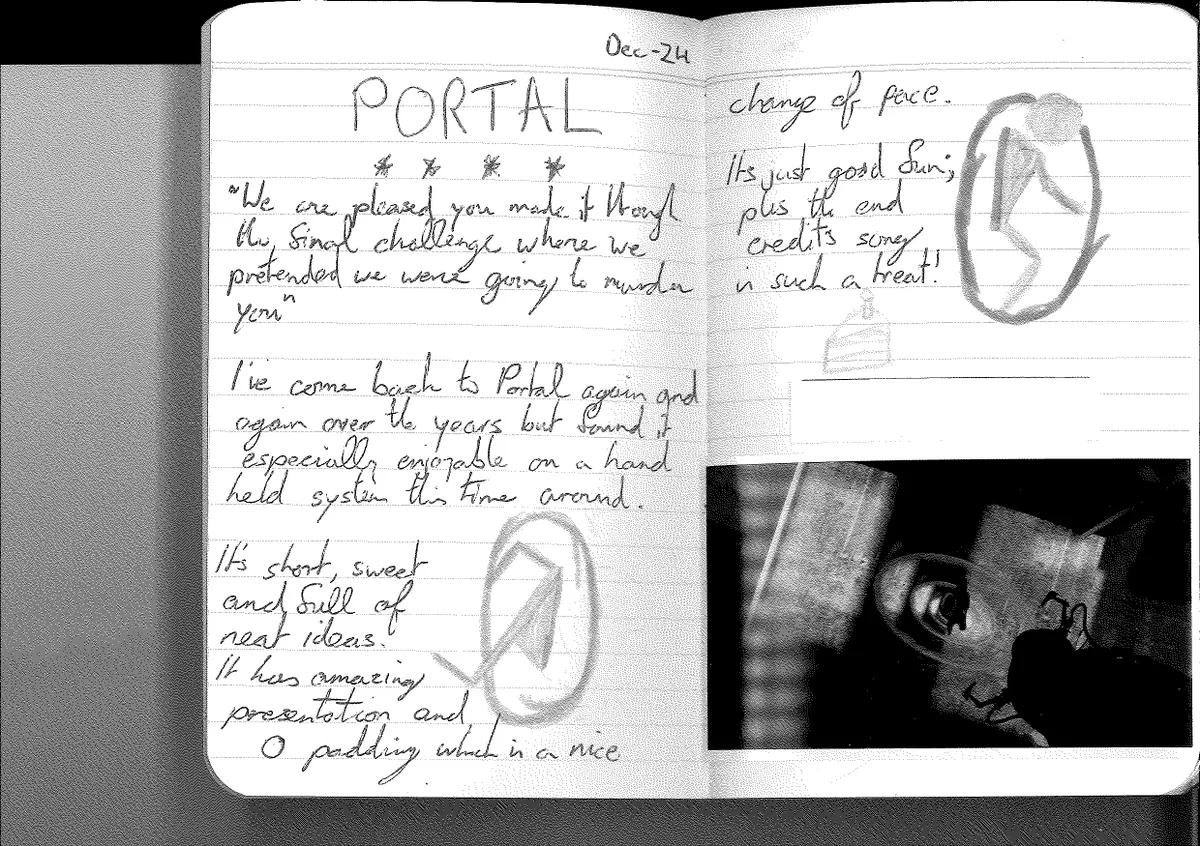 Dec-24
PORTAL
* * * *
"We are pleased you made it through
the final challenge where we
pretended we were going to murder
you"
I've come back to Portal again and
again over the years but found it
especially enjoyable on a hand
held system this time around.
It's short, sweet
and full of
neat ideas.
It has amazing
presentation and
O padding which is a nice
change of pace.
It's just good fun;
plus the end
credits song
is such a treat!